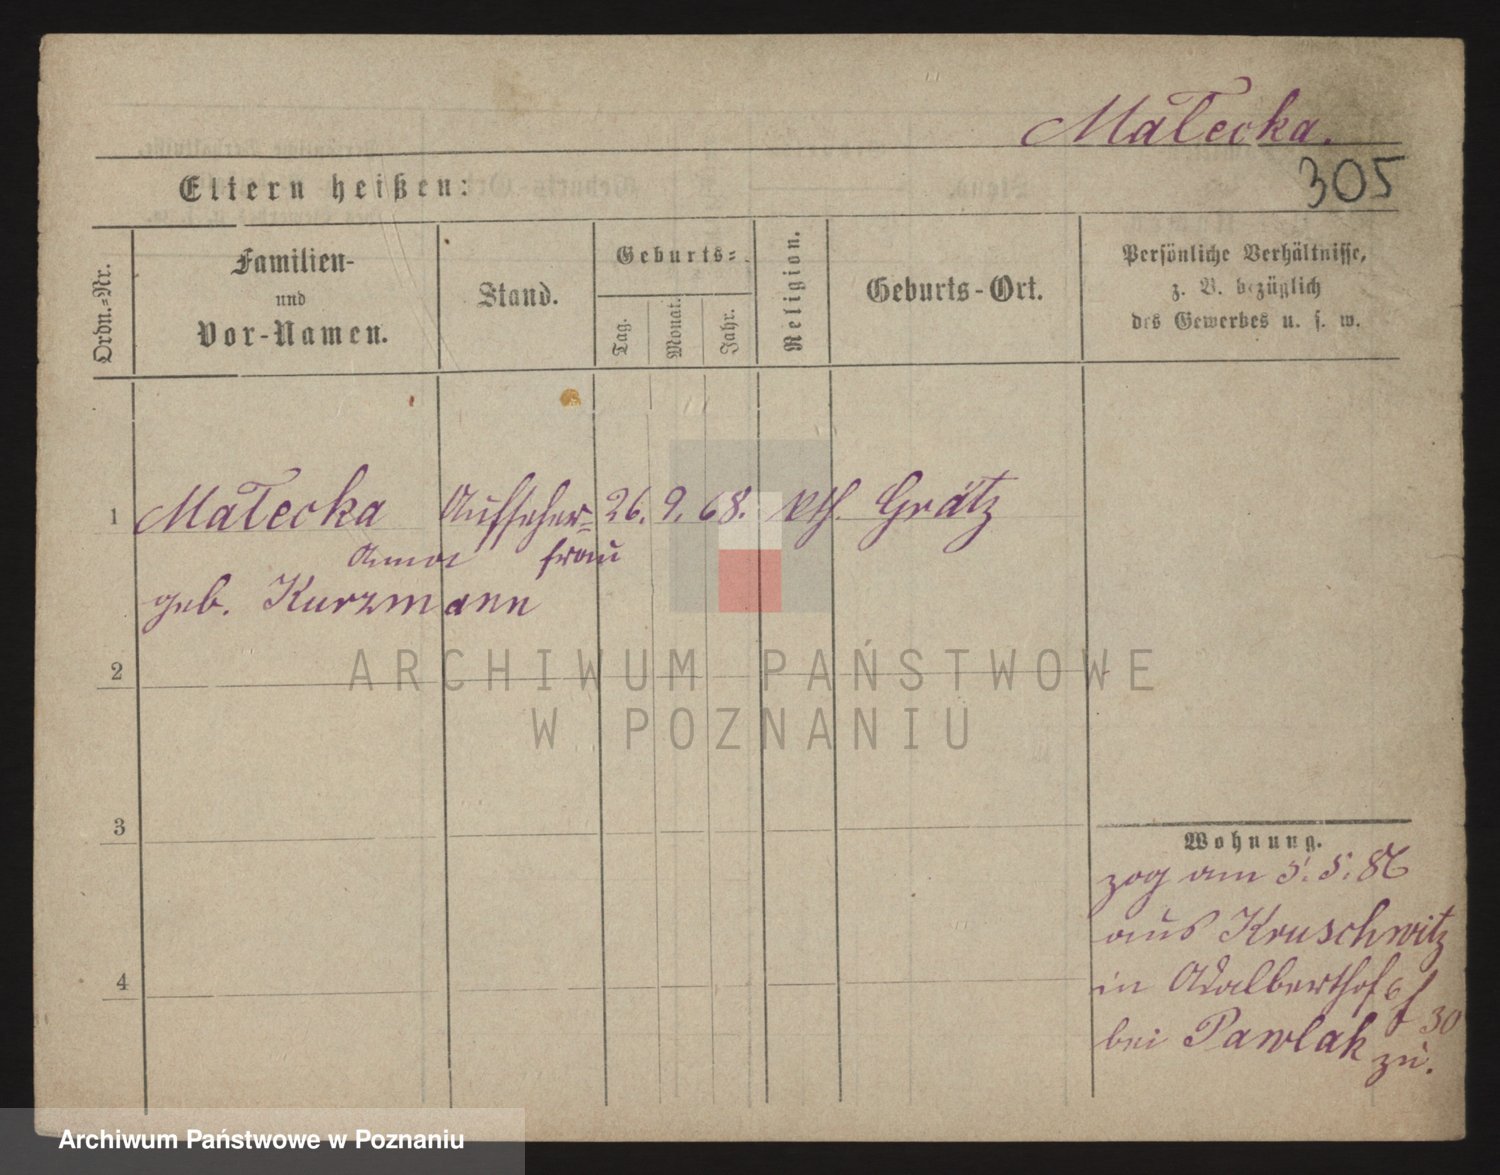 Małecka.
305
Eltern heißen:
Ordn.-Nr.
Familien-
und
Vor-Namen.
Stand.
Geburts-
Tag.
Monat.
Jahr.
Religion.
Geburts-Ort.
Persönliche Verhältnisse,
z. B. bezüglich
des Gewerbes u. s. w.
1 Małecka Aufseher= 26. 9. 68. kth. Grätz
Anna frau
geb. Kurzmann
2
3
4
Wohnung.
zog am 5. 5. 86
aus Kruschwitz
in Adalberthof
30
bei Pawlak zu.
ARCHIWUM PAŃSTWOWE
W POZNANIU
Archiwum Państwowe w Poznaniu